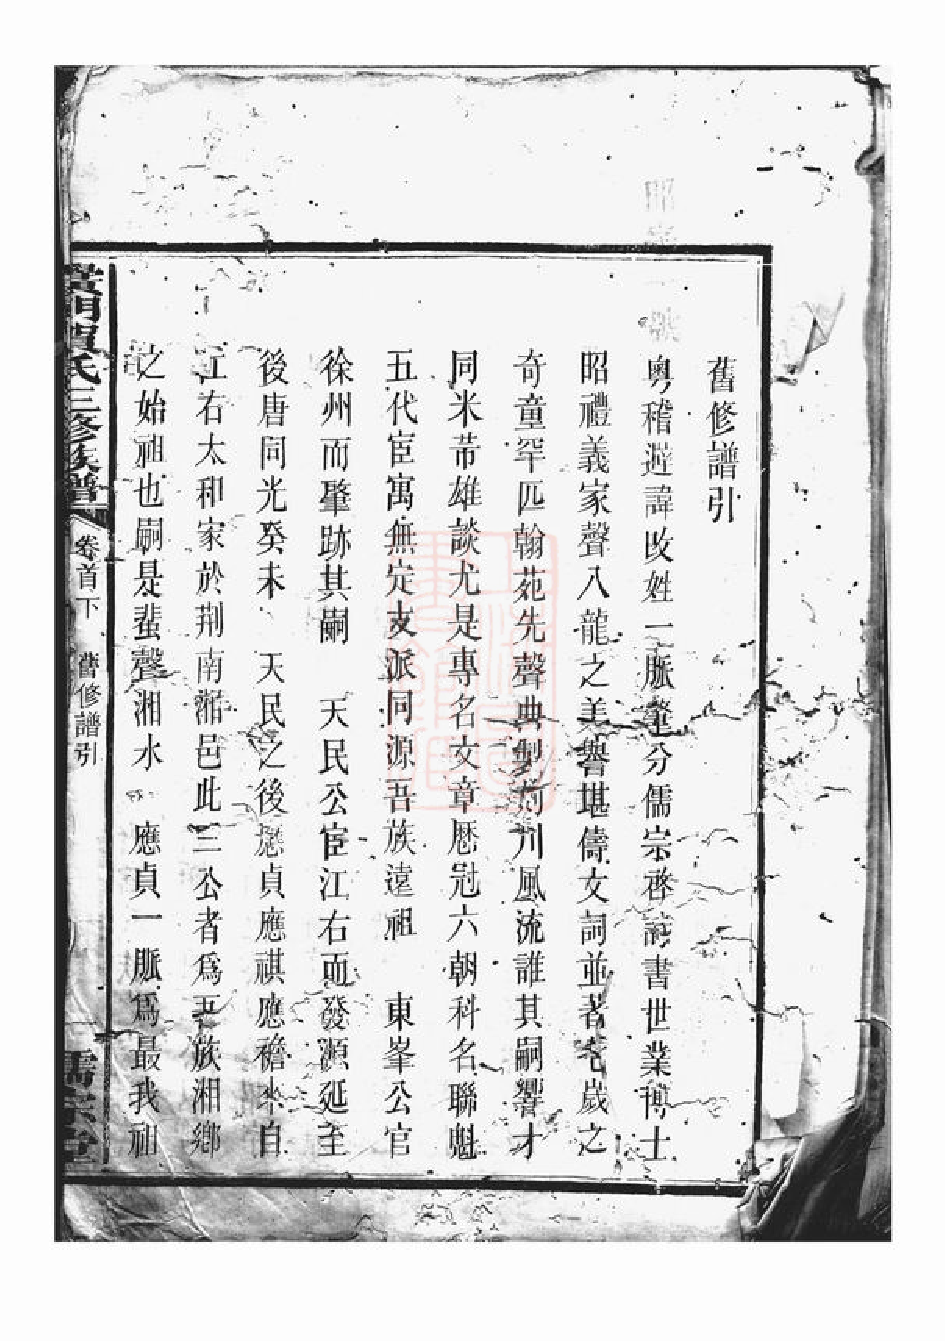 舊修譜引
粵稽避諱改姓一脈肇分儒宗啓詩書世業博士
昭禮義家聲八龍之美譽堪儔文詞並著老歲之
奇童罕匹翰苑先聲典製荷川風流誰其嗣響才
同米芾雄談尤是專名文章歷冠六朝科名聯魁
五代宦寓無定支派同源吾族遠祖 東峯公官
徐州而肇跡其嗣 天民公宦江右而發源延至
後唐同光癸未 天民之後應貞應祺應襜來自
江右太和家於荆南湘邑此三公者爲吾族湘鄉
之始祖也嗣是蜚聲湘水 應貞一脈爲最我祖
賀氏三修族譜 卷首下 舊修譜引 儒宗堂